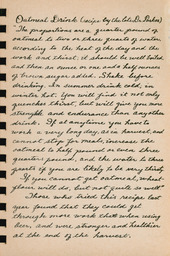 Oatmeal Drink (recipe by the late Dr. Parkes)
"The proportions are a quarter pound of
oatmeal to two or three quarts of water,
according to the heat of the day and the
work and thirst; it should be well boiled
and then an ounce or one and a half ounces
of brown sugar added. Shake before
drinking. In summer drink cold, in
winter hot. You will find it not only
quenches thirst, but will give you more
strength and endurance than any other
drink. If at any time you have to
work a very long day, as in harvest, and
cannot stop for meals, increase the
oatmeal to half pound or even three
quarter pound, and the water to three
quarts if you are likely to be very thirsty.
If you cannot get oatmeal, wheat-
flour will do, but not quite so well."
Those who tried this recipe last
year found that they could get
through more work than when using
beer, and were stronger and healthier
at the end of the harvest.